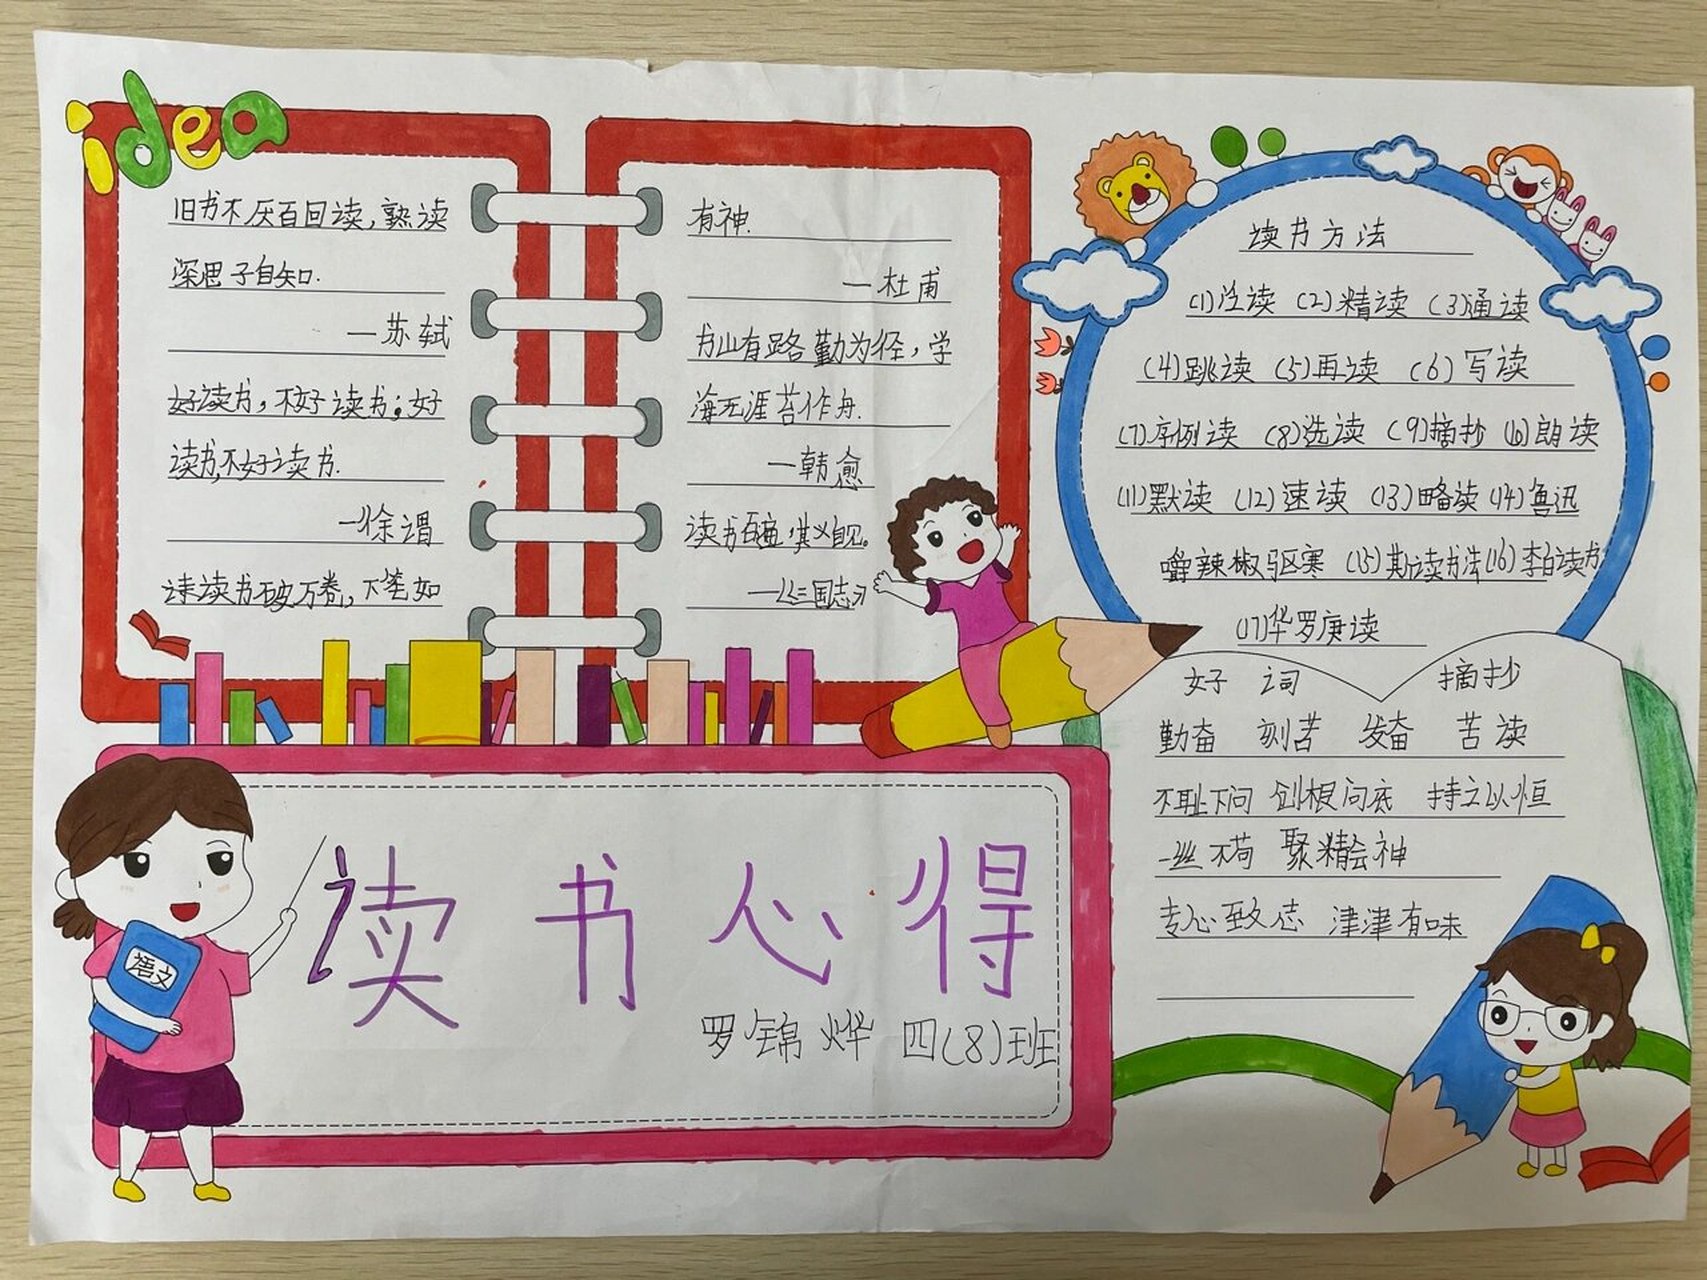 idea
旧书不厌百回读,熟读
深思子自知.
—苏轼
好读书,不好读书;好
读书,不好读书.
—徐谓
读读书破万卷,下笔如
有神.
—杜甫
书山有路勤为径,学
海无涯苦作舟.
—韩愈
读书百遍,其义自见。
—《三国志》
读书方法
(1)泛读 (2)精读 (3)通读
(4)跳读 (5)再读 (6)写读
(7)序例读 (8)选读 (9)摘抄 (10)朗读
(11)默读 (12)速读 (13)略读 (14)鲁迅
嚼辣椒驱寒 (15)斯读书法(16)李白读书
(17)华罗庚读
好 词 摘抄
勤奋 刻苦 发奋 苦读
不耻下问 刨根问底 持之以恒
一丝不苟 聚精会神
专心致志 津津有味
语文
读书心得
罗锦烨 四(8)班